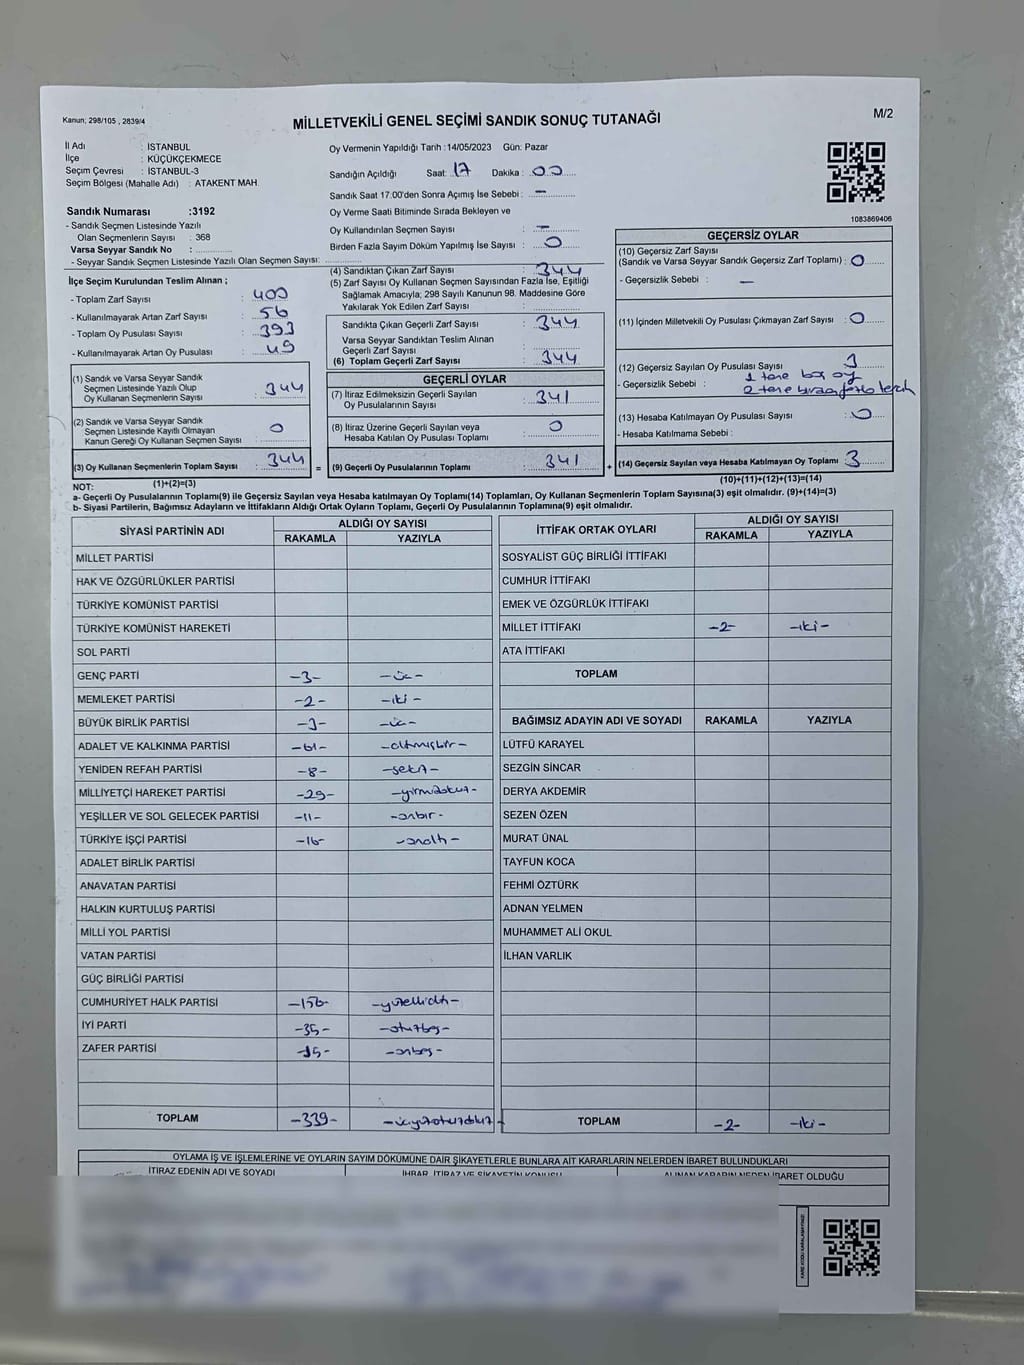 Kanun; 298/105 , 2839/4
MİLLETVEKİLİ GENEL SEÇİMİ SANDIK SONUÇ TUTANAĞI
M/2
İl Adı : İSTANBUL
İlçe : KÜÇÜKÇEKMECE
Seçim Çevresi : İSTANBUL-3
Seçim Bölgesi (Mahalle Adı) : ATAKENT MAH.
Sandık Numarası :3192
- Sandık Seçmen Listesinde Yazılı
Olan Seçmenlerin Sayısı : 368
Varsa Seyyar Sandık No :
- Seyyar Sandık Seçmen Listesinde Yazılı Olan Seçmen Sayısı:
Oy Vermenin Yapıldığı Tarih : 14/05/2023 Gün: Pazar
Sandığın Açıldığı Saat: 17 Dakika : 00
Sandık Saat 17.00'den Sonra Açımış İse Sebebi : -
Oy Verme Saati Bitiminde Sırada Bekleyen ve
Oy Kullandırılan Seçmen Sayısı : -
Birden Fazla Sayım Döküm Yapılmış İse Sayısı : 0
1083869406
İlçe Seçim Kurulundan Teslim Alınan ;
- Toplam Zarf Sayısı : 400
- Kullanılmayarak Artan Zarf Sayısı : 56
- Toplam Oy Pusulası Sayısı : 393
- Kullanılmayarak Artan Oy Pusulası : 49
(1) Sandık ve Varsa Seyyar Sandık
Seçmen Listesinde Yazılı Olup
Oy Kullanan Seçmenlerin Sayısı : 344
(2) Sandık ve Varsa Seyyar Sandık
Seçmen Listesinde Kayıtlı Olmayan
Kanun Gereği Oy Kullanan Seçmen Sayısı : 0
(3) Oy Kullanan Seçmenlerin Toplam Sayısı : 344
(1)+(2)=(3)
(4) Sandıktan Çıkan Zarf Sayısı : 344
(5) Zarf Sayısı Oy Kullanan Seçmen Sayısından Fazla İse, Eşitliği
Sağlamak Amacıyla; 298 Sayılı Kanunun 98. Maddesine Göre
Yakılarak Yok Edilen Zarf Sayısı :
Sandıkta Çıkan Geçerli Zarf Sayısı : 344
Varsa Seyyar Sandıktan Teslim Alınan
Geçerli Zarf Sayısı :
(6) Toplam Geçerli Zarf Sayısı : 344
GEÇERLİ OYLAR
(7) İtiraz Edilmeksizin Geçerli Sayılan
Oy Pusulalarının Sayısı : 341
(8) İtiraz Üzerine Geçerli Sayılan veya
Hesaba Katılan Oy Pusulası Toplamı : 0
= (9) Geçerli Oy Pusulalarının Toplamı : 341 +
GEÇERSİZ OYLAR
(10) Geçersiz Zarf Sayısı
(Sandık ve Varsa Seyyar Sandık Geçersiz Zarf Toplamı) : 0
- Geçersizlik Sebebi : -
(11) İçinden Milletvekili Oy Pusulası Çıkmayan Zarf Sayısı : 0
(12) Geçersiz Sayılan Oy Pusulası Sayısı : 3
- Geçersizlik Sebebi : 1 tane boş oy
2 tane birden fazla tercih
(13) Hesaba Katılmayan Oy Pusulası Sayısı : 0
- Hesaba Katılmama Sebebi :
(14) Geçersiz Sayılan veya Hesaba Katılmayan Oy Toplamı : 3
(10)+(11)+(12)+(13)=(14)
NOT:
a- Geçerli Oy Pusulalarının Toplamı(9) ile Geçersiz Sayılan veya Hesaba katılmayan Oy Toplamı(14) Toplamları, Oy Kullanan Seçmenlerin Toplam Sayısına(3) eşit olmalıdır. (9)+(14)=(3)
b- Siyasi Partilerin, Bağımsız Adayların ve İttifakların Aldığı Ortak Oyların Toplamı, Geçerli Oy Pusulalarının Toplamına(9) eşit olmalıdır.
SİYASİ PARTİNİN ADI ALDIĞI OY SAYISI
RAKAMLA YAZIYLA
MİLLET PARTİSİ
HAK VE ÖZGÜRLÜKLER PARTİSİ
TÜRKİYE KOMÜNİST PARTİSİ
TÜRKİYE KOMÜNİST HAREKETİ
SOL PARTİ
GENÇ PARTİ -3- -üç-
MEMLEKET PARTİSİ -2- -iki-
BÜYÜK BİRLİK PARTİSİ -3- -üç-
ADALET VE KALKINMA PARTİSİ -61- -altmışbir-
YENİDEN REFAH PARTİSİ -8- -sekiz-
MİLLİYETÇİ HAREKET PARTİSİ -29- -yirmidokuz-
YEŞİLLER VE SOL GELECEK PARTİSİ -11- -onbir-
TÜRKİYE İŞÇİ PARTİSİ -16- -onaltı-
ADALET BİRLİK PARTİSİ
ANAVATAN PARTİSİ
HALKIN KURTULUŞ PARTİSİ
MİLLİ YOL PARTİSİ
VATAN PARTİSİ
GÜÇ BİRLİĞİ PARTİSİ
CUMHURİYET HALK PARTİSİ -156- -yüzellialtı-
İYİ PARTİ -35- -otuzbeş-
ZAFER PARTİSİ -15- -onbeş-
TOPLAM -339- -üçyüzotuzdokuz-
İTTİFAK ORTAK OYLARI ALDIĞI OY SAYISI
RAKAMLA YAZIYLA
SOSYALİST GÜÇ BİRLİĞİ İTTİFAKI
CUMHUR İTTİFAKI
EMEK VE ÖZGÜRLÜK İTTİFAKI
MİLLET İTTİFAKI -2- -iki-
ATA İTTİFAKI
TOPLAM
BAĞIMSIZ ADAYIN ADI VE SOYADI RAKAMLA YAZIYLA
LÜTFÜ KARAYEL
SEZGİN SİNCAR
DERYA AKDEMİR
SEZEN ÖZEN
MURAT ÜNAL
TAYFUN KOCA
FEHMİ ÖZTÜRK
ADNAN YELMEN
MUHAMMET ALİ OKUL
İLHAN VARLIK
TOPLAM -2- -iki-
OYLAMA İŞ VE İŞLEMLERİNE VE OYLARIN SAYIM DÖKÜMÜNE DAİR ŞİKAYETLERLE BUNLARA AİT KARARLARIN NELERDEN İBARET BULUNDUKLARI
İTİRAZ EDENİN ADI VE SOYADI İHBAR, İTİRAZ VE ŞİKAYETİN KONUSU ALINAN KARARIN NEDEN İBARET OLDUĞU